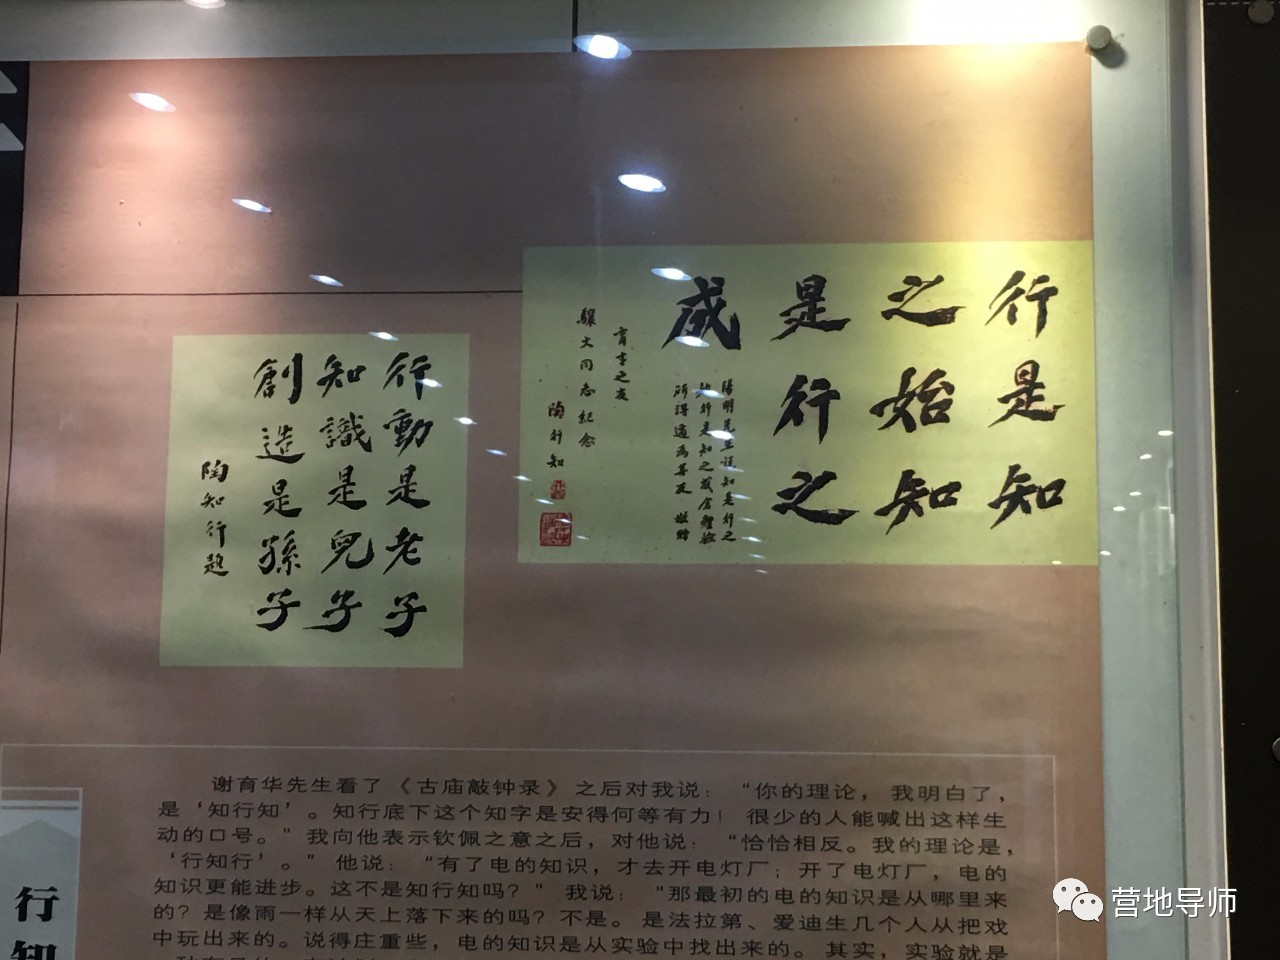 行是知
之始知
是行之
成
陽明先生说知是行之
所得適為其反 敬贈
育才之友
驥文同志紀念
陶行知
行動是老子
知識是兒子
創造是孫子
陶知行題
谢育华先生看了《古庙敲钟录》之后对我说：“你的理论，我明白了，
是‘知行知’。知行底下这个知字是安得何等有力！很少的人能喊出这样生
动的口号。”我向他表示钦佩之意之后，对他说：“恰恰相反。我的理论是，
‘行知行’。”他说：“有了电的知识，才去开电灯厂；开了电灯厂，电的
知识更能进步。这不是知行知吗？”我说：“那最初的电的知识是从哪里来
的？是像雨一样从天上落下来的吗？不是。是法拉第、爱迪生几个人从把戏
中玩出来的。说得庄重些，电的知识是从实验中找出来的。其实，实验就是
行知
营地导师